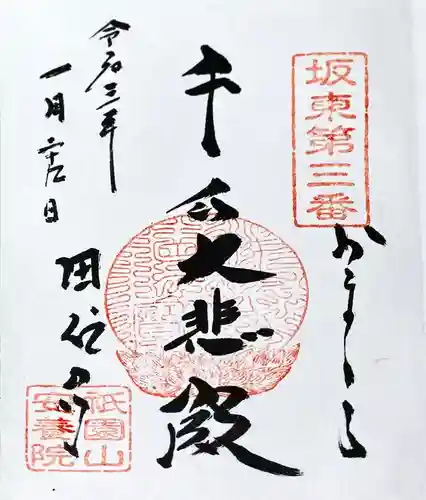 坂東第三番
かまくら
千手大悲殿
令和三年
一月 日
田代寺
祇園山
安養院